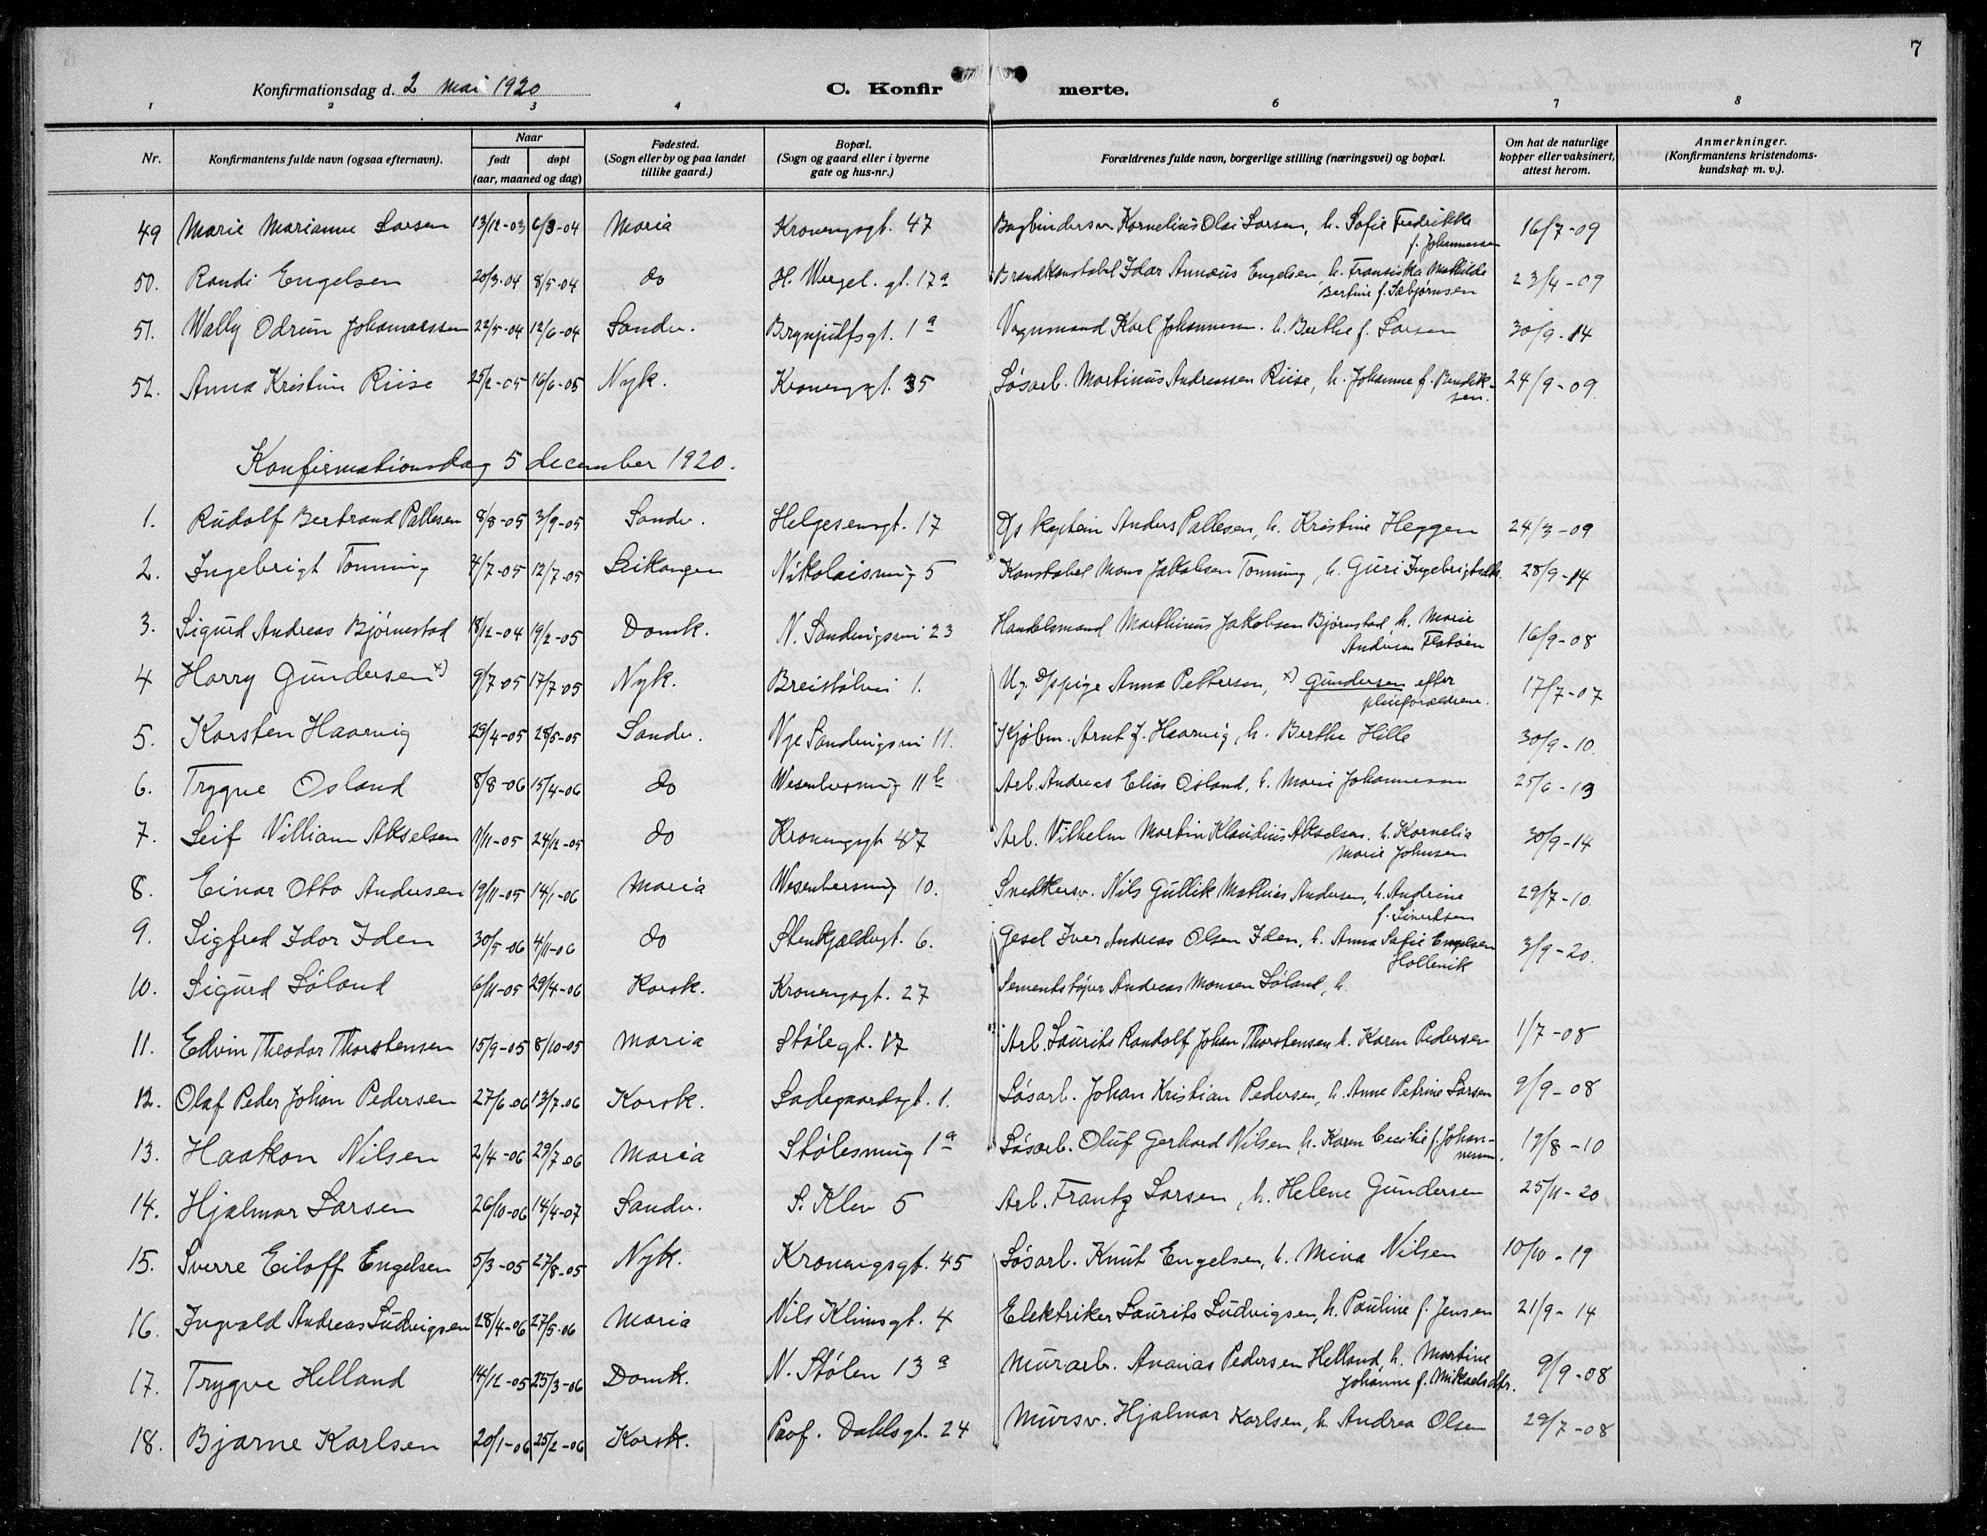 7
Konfirmationsdag d. 2 mai 1920
C. Konfirmerte.
1 2 3 4 5 6 7 8
Nr. Konfirmantens fulde navn (ogsaa efternavn). Naar født døpt (aar, maaned og dag) Fødested. (Sogn eller by og paa landet tillike gaard.) Bopæl. (Sogn og gaard eller i byerne gate og hus-nr.) Forældrenes fulde navn, borgerlige stilling (næringsvei) og bopæl. Om hat de naturlige kopper eller vaksinert, attest herom. Anmerkninger. (Konfirmantens kristendoms-kundskap m. v.).
49 Marie Marianne Larsen 13/12-03 6/3-04 Maria Kronengsgt. 47 Bogbindersv. Kornelius Olai Larsen, h. Sofie Fredrikke f. Johannessen 16/7-09
50. Randi Engelsen 20/3-04 8/5-04 do H. Wergel. gt. 17a Brandkonstabel Idar Annæus Engelsen h. Fransiska Mathilde Bertine f. Sæbjørnsen 23/4-09
51. Wally Odrun Johannessen 22/5-04 12/6-04 Sandv. Brynjulfsgt. 1a Vognmand Karl Johannesen. h. Berthe f. Larsen 30/9-14
52. Anna Kristine Riise 25/2-05 16/6-05 Nyk. Kronengsgt. 35 Løsarb. Martinus Andreassen Riise, h. Johanne f. Bendiksen. 24/9-09
Konfirmationsdag 5 december 1920.
1. Rudolf Bertrand Pallesen 8/8-05 3/9-05 Sandv. Helgesensgt. 17 D/s kaptein Anders Pallesen, h. Kristine Heggen 24/3-09
2. Ingebrigt Tonning 4/7-05 12/7-05 Leikanger Nikolaismug 5 Konstabel Mons Jakobsen Tonning, h. Guri Ingebrigtsdtr. 28/9-14
3. Sigurd Andreas Bjørnestad 18/12-04 19/2-05 Domk. N. Sandvigsvei 23 Handelsmand Marthinus Jakobsen Bjørnstad h. Marie Andrea Flatøen 16/9-08
4 Harry Gundersen x) 9/7-05 17/7-05 Nyk. Breistølvei 1. Ug. Tjpige Anna Pettersen, x) Gundersen efter pleieforældrene. 17/7-07
5. Karsten Haarvig 29/4-05 28/5-05 Sandv. Nye Sandvigsvei 11. Kjøbm. Arnt J. Haarvig, h. Berthe Hille 30/9-10.
6. Trygve Osland 8/8-06 15/4-06 do Wesenbergsmug 11b Arb. Andreas Elias Osland, h. Marie Johannesen 25/6-13
7. Leif Villiam Akselsen 1/11-05 24/12-05 do Kronengsgt 47 Arb. Vilhelm Martin Klaudius Akselsen. h. Kornelia Marie Johnsen 30/9-14
8. Einar Otto Andersen 19/11-05 14/1-06 Maria Wesenbersmug 10. Snedkersv. Nils Gullik Mathias Andersen, h. Andrine f. Sivertsen 29/7-10.
9. Sigfred Idor Iden 30/5-06 4/11-06 do Stenkjeldergt. 6. Gesel Iver Andreas Olsen Iden, h. Anna Sofie Engelsen Hollevik 3/9-20.
10. Sigurd Søland 6/11-05 29/4-06 Korsk. Kronengsgt. 27 Sementstøper Andreas Monsen Søland, h.
11. Edvin Theodor Thorstensen 15/9-05 8/10-05 Maria Stølegt. 17 Arb. Laurits Randolf Johan Thorstensen h. Karen Pedersen 1/7-08
12. Olaf Peder Johan Pedersen 27/6-06 13/7-06 Korsk. Ladegaardsgt. 1. Løsarb. Johan Kristian Pedersen, h. Anne Petrine Larsen 9/9-08
13. Haakon Nilsen 2/4-06 29/7-06 Maria Stølesmug 1a Løsarb. Oluf Gerhard Nilsen, h. Karen Cecilie f. Johannesen. 19/8-10
14. Hjalmar Larsen 26/10-06 14/4-07 Sandv. S. Klev 5 Arb. Frantz Larsen, h. Helene Gundersen 25/11-20
15. Sverre Eiloff Engelsen 5/3-05 27/8-05 Nyk. Kronengsgt. 45 Løsarb. Knut Engelsen, h. Mina Nilsen 10/10-19
16. Ingvald Andreas Ludvigsen 28/4-06 27/5-06 Maria Nils Klimsgt. 4 Elektriker Laurits Ludvigsen, h. Pauline f. Jensen 21/9-14
17. Trygve Helland 14/12-05 25/3-06 Domk. N. Stølen 13a Murarb. Ananias Pedersen Helland, h. Martine Johanne f. Mikaelsdtr. 9/9-08
18. Bjarne Karlsen 20/1-06 25/2-06 Korsk. Prof. Dahlsgt. 24 Mursv. Hjalmar Karlsen, h. Andrea Olsen 29/7-08